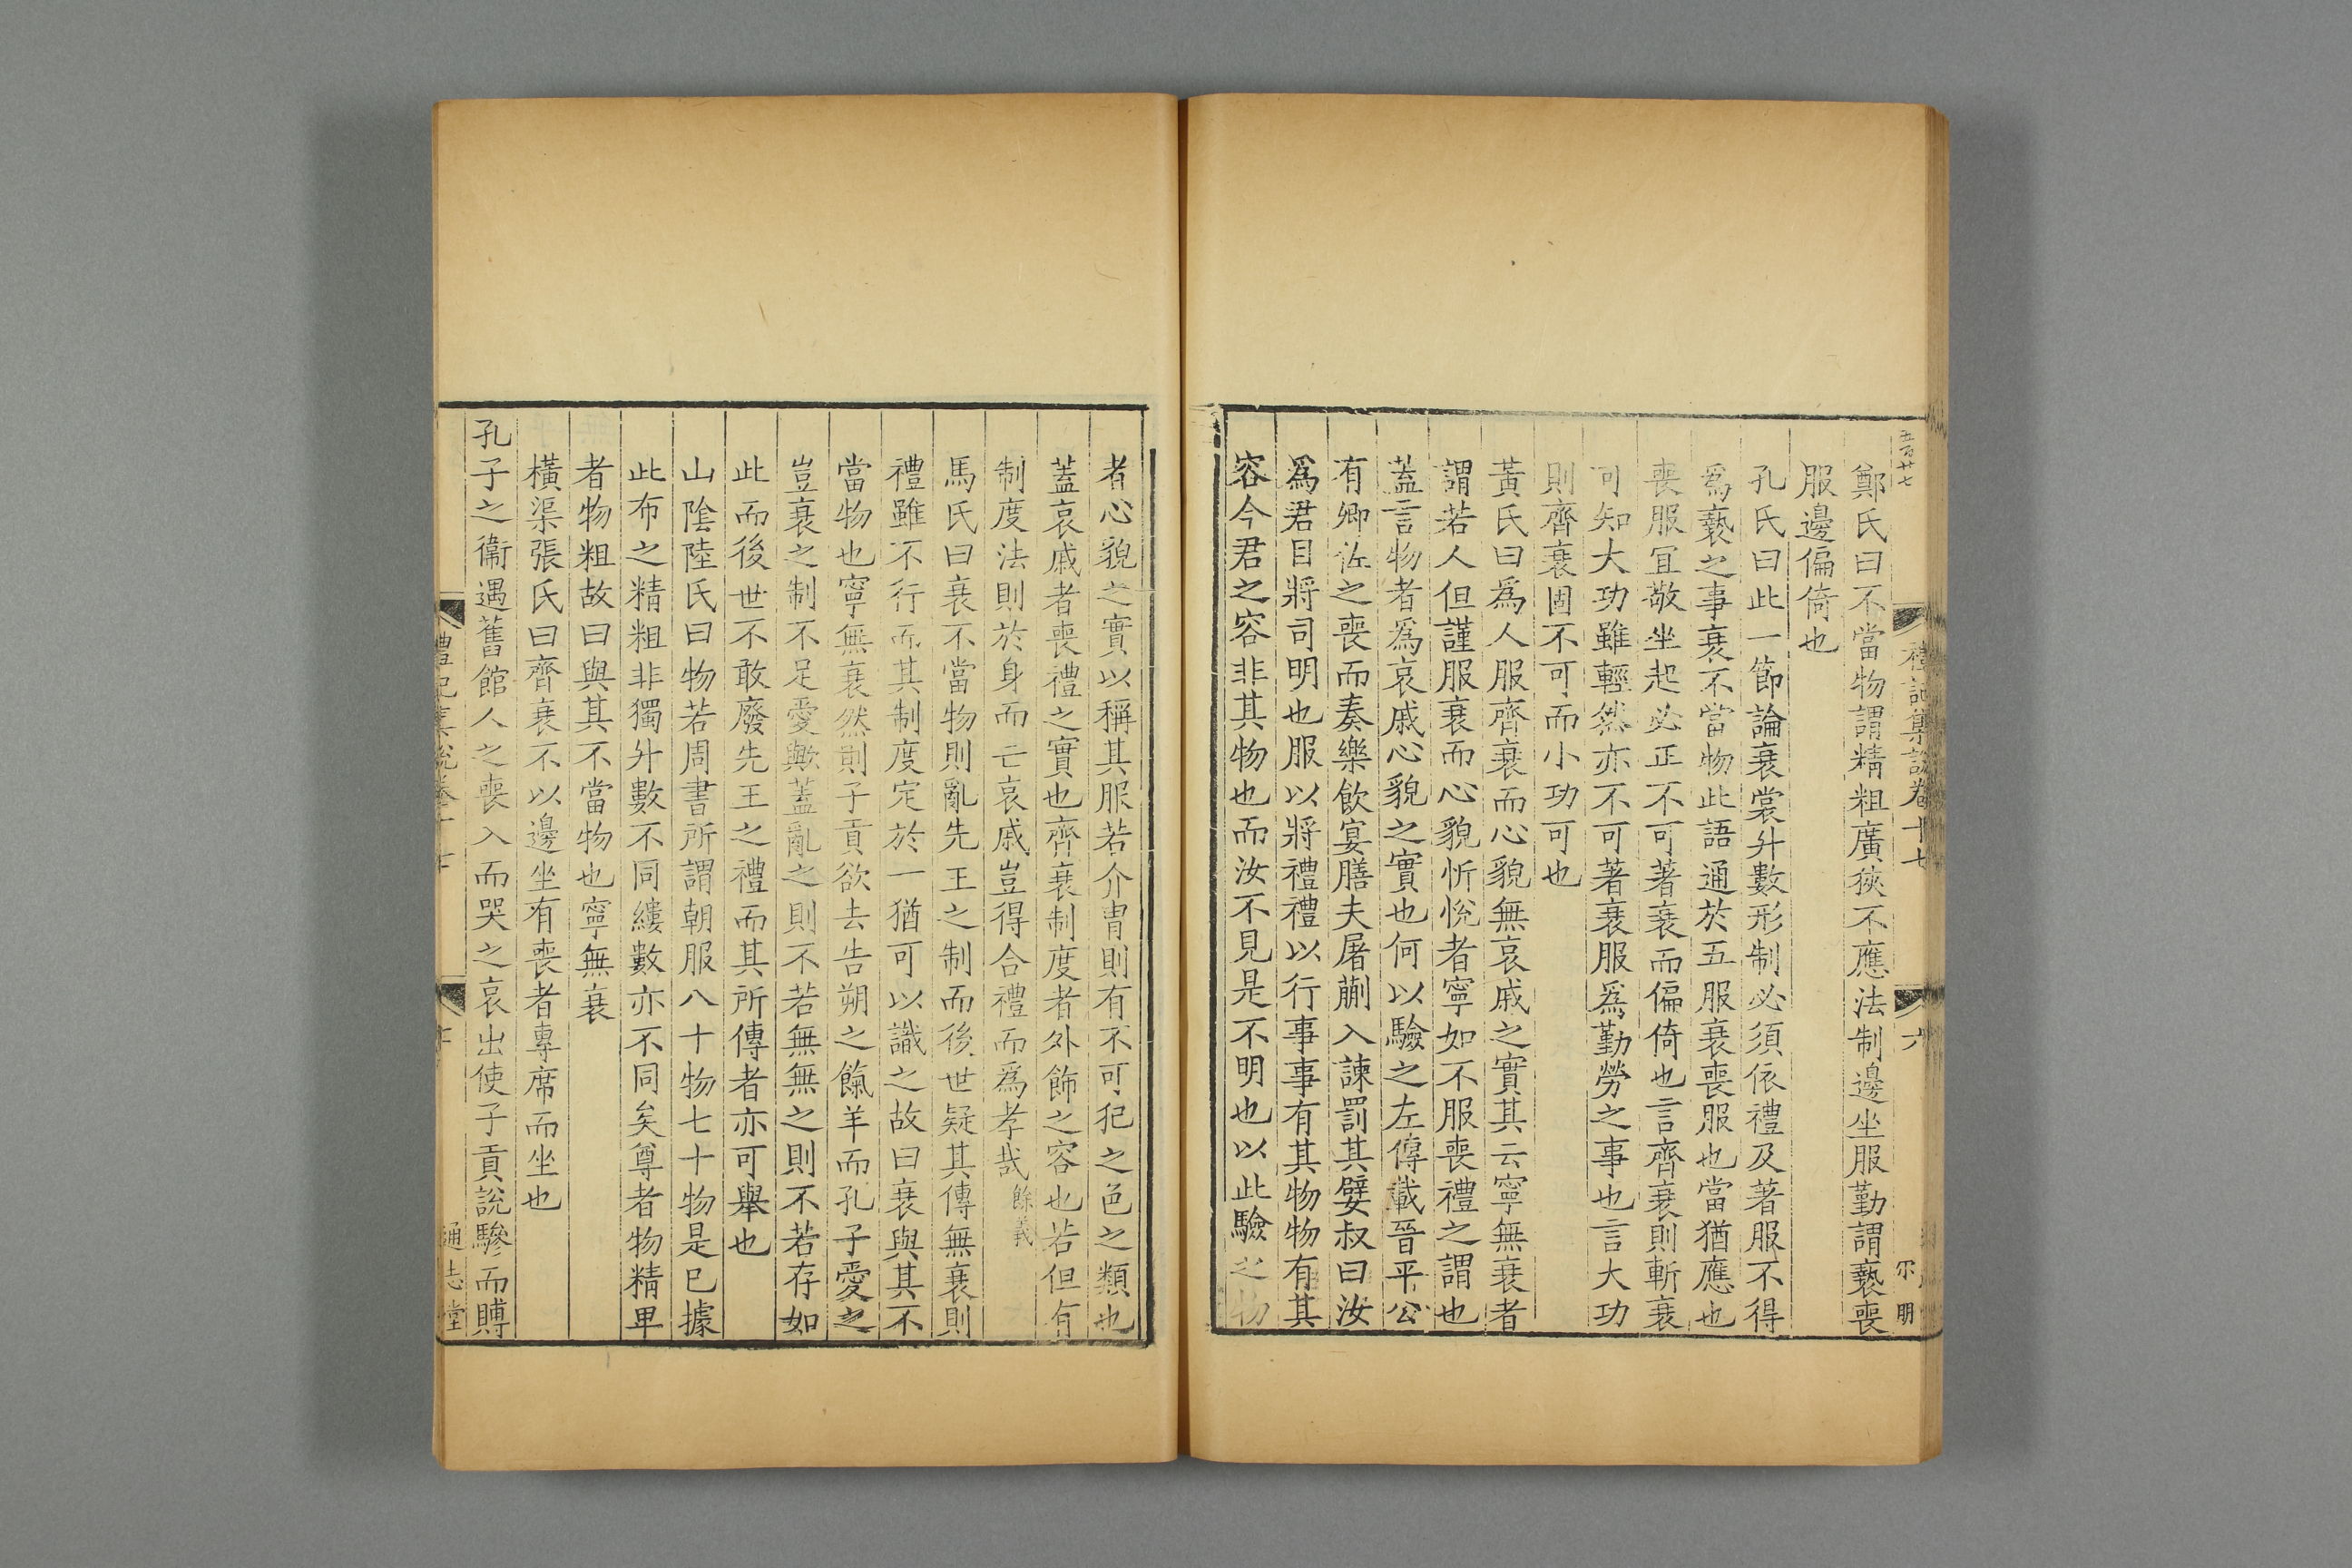 五百廿七
禮記集說卷十七
六
鄭氏曰不當物謂精粗廣狹不應法制邊坐服勤謂褻喪
服邊偏倚也
孔氏曰此一節論衰裳升數形制必須依禮及著服不得
爲褻之事衰不當物此語通於五服衰喪服也當猶應也
喪服宜敬坐起必正不可著衰而偏倚也言齊衰則斬衰
可知大功雖輕然亦不可著衰服爲勤勞之事也言大功
則齊衰固不可而小功可也
黃氏曰爲人服齊衰而心貌無哀戚之實其云寧無衰者
謂若人但謹服衰而心貌忻悅者寧如不服喪禮之謂也
蓋言物者爲哀戚心貌之實也何以驗之左傳載晉平公
有卿佐之喪而奏樂飲宴膳夫屠蒯入諫罰其嬖叔曰汝
爲君目將司明也服以將禮禮以行事事有其物物有其
容今君之容非其物也而汝不見是不明也以此驗之物
者心貌之實以稱其服若介胄則有不可犯之色之類也
蓋哀戚者喪禮之實也齊衰制度者外飾之容也若但有
制度法則於身而亡哀戚豈得合禮而爲孝哉餘義
馬氏曰衰不當物則亂先王之制而後世疑其傳無衰則
禮雖不行而其制度定於一猶可以識之故曰衰與其不
當物也寧無衰然則子貢欲去告朔之餼羊而孔子愛之
豈衰之制不足愛歟蓋亂之則不若無無之則不若存如
此而後世不敢廢先王之禮而其所傳者亦可舉也
山陰陸氏曰物若周書所謂朝服八十物七十物是已據
此布之精粗非獨升數不同縷數亦不同矣尊者物精卑
者物粗故曰與其不當物也寧無衰
橫渠張氏曰齊衰不以邊坐有喪者專席而坐也
孔子之衞遇舊館人之喪入而哭之哀出使子貢說驂而賻
禮記集說卷十七
通志堂